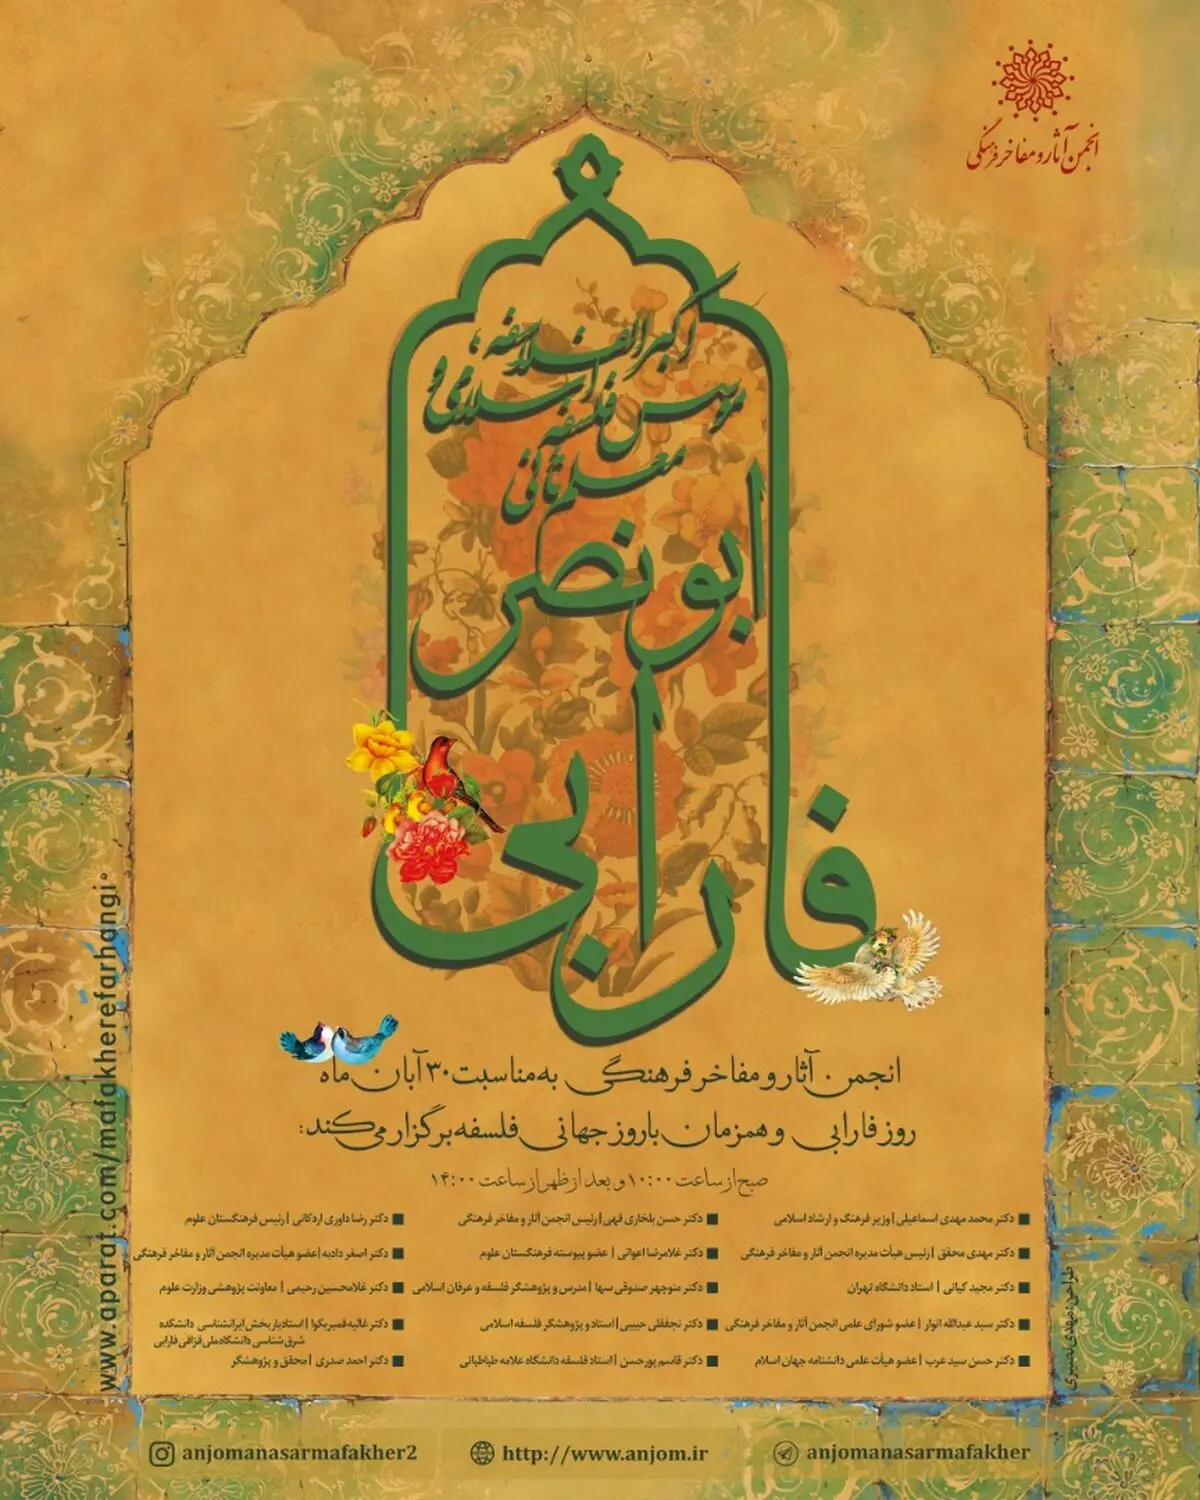 انجمن آثار و مفاخر فرهنگی
اکبر الفلاسفه،
موسس فلسفه اسلامی و
معلم ثانی
ابونصر
فارابی
انجمن آثار و مفاخر فرهنگی به مناسبت ۳۰ آبان ماه
روز فارابی و همزمان با روز جهانی فلسفه برگزار می‌کند:
صبح از ساعت ۱۰:۰۰ و بعد از ظهر از ساعت ۱۴:۰۰
دکتر محمد مهدی اسماعیلی | وزیر فرهنگ و ارشاد اسلامی
دکتر حسن بلخاری قهی | رئیس انجمن آثار و مفاخر فرهنگی
دکتر رضا داوری اردکانی | رئیس فرهنگستان علوم
دکتر مهدی محقق | رئیس هیأت مدیره انجمن آثار و مفاخر فرهنگی
دکتر غلامرضا اعوانی | عضو پیوسته فرهنگستان علوم
دکتر اصغر دادبه | عضو هیأت مدیره انجمن آثار و مفاخر فرهنگی
دکتر مجید کیانی | استاد دانشگاه تهران
دکتر منوچهر صدوقی سها | مدرس و پژوهشگر فلسفه و عرفان اسلامی
دکتر غلامحسین رحیمی | معاونت پژوهشی وزارت علوم
دکتر سید عبدالله انوار | عضو شورای علمی انجمن آثار و مفاخر فرهنگی
دکتر نجفقلی حبیبی | استاد و پژوهشگر فلسفه اسلامی
دکتر غالیه قمبربکوا | استادیار بخش ایرانشناسی دانشکده
شرق‌شناسی دانشگاه ملی قزاقی فارابی
دکتر حسن سید عرب | عضو هیأت علمی دانشنامه جهان اسلام
دکتر قاسم پورحسن | استاد فلسفه دانشگاه علامه طباطبائی
دکتر احمد صدری | محقق و پژوهشگر
طراحی: مهدی نصیری
www.aparat.com/mafakherefarhangi
anjomanasarmafakher2
http://www.anjom.ir
anjomanasarmafakher